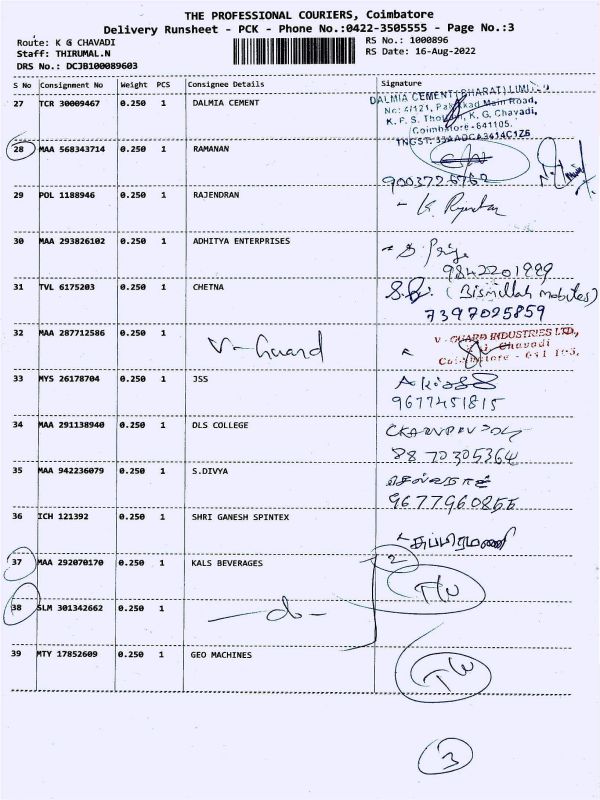 THE PROFESSIONAL COURIERS, Coimbatore
Delivery Runsheet - PCK - Phone No.:0422-3505555 - Page No.:3
Route: K G CHAVADI
RS No.: 1000896
Staff: THIRUMAL.N
RS Date: 16-Aug-2022
DRS No.: DCJB100089603
S No Consignment No Weight PCS Consignee Details Signature
27 TCR 30009467 0.250 1 DALMIA CEMENT
DALMIA CEMENT (BHARAT) LIMITED
No: 4/121, Palakkad Main Road,
K. P. S. Thottam, K. G. Chavadi,
Coimbatore - 641105.
TNGST: 33AADCA3414C1Z6
28 MAA 568343714 0.250 1 RAMANAN
9003726762
29 POL 1188946 0.250 1 RAJENDRAN
30 MAA 293826102 0.250 1 ADHITYA ENTERPRISES
S. Priya
9842201999
31 TVL 6175203 0.250 1 CHETNA
(Bismillah mobiles)
7397025859
32 MAA 287712586 0.250 1
V-Guard
V - GUARD INDUSTRIES LTD,
K.G. Chavadi
Coimbatore - 641 105.
33 MYS 26178704 0.250 1 JSS
9677451815
34 MAA 291138940 0.250 1 DLS COLLEGE
8870305364
35 MAA 942236079 0.250 1 S.DIVYA
36 ICH 121392 0.250 1 SHRI GANESH SPINTEX
37 MAA 292070170 0.250 1 KALS BEVERAGES
2
38 SLM 301342662 0.250 1
-do-
39 MTY 17852609 0.250 1 GEO MACHINES
3